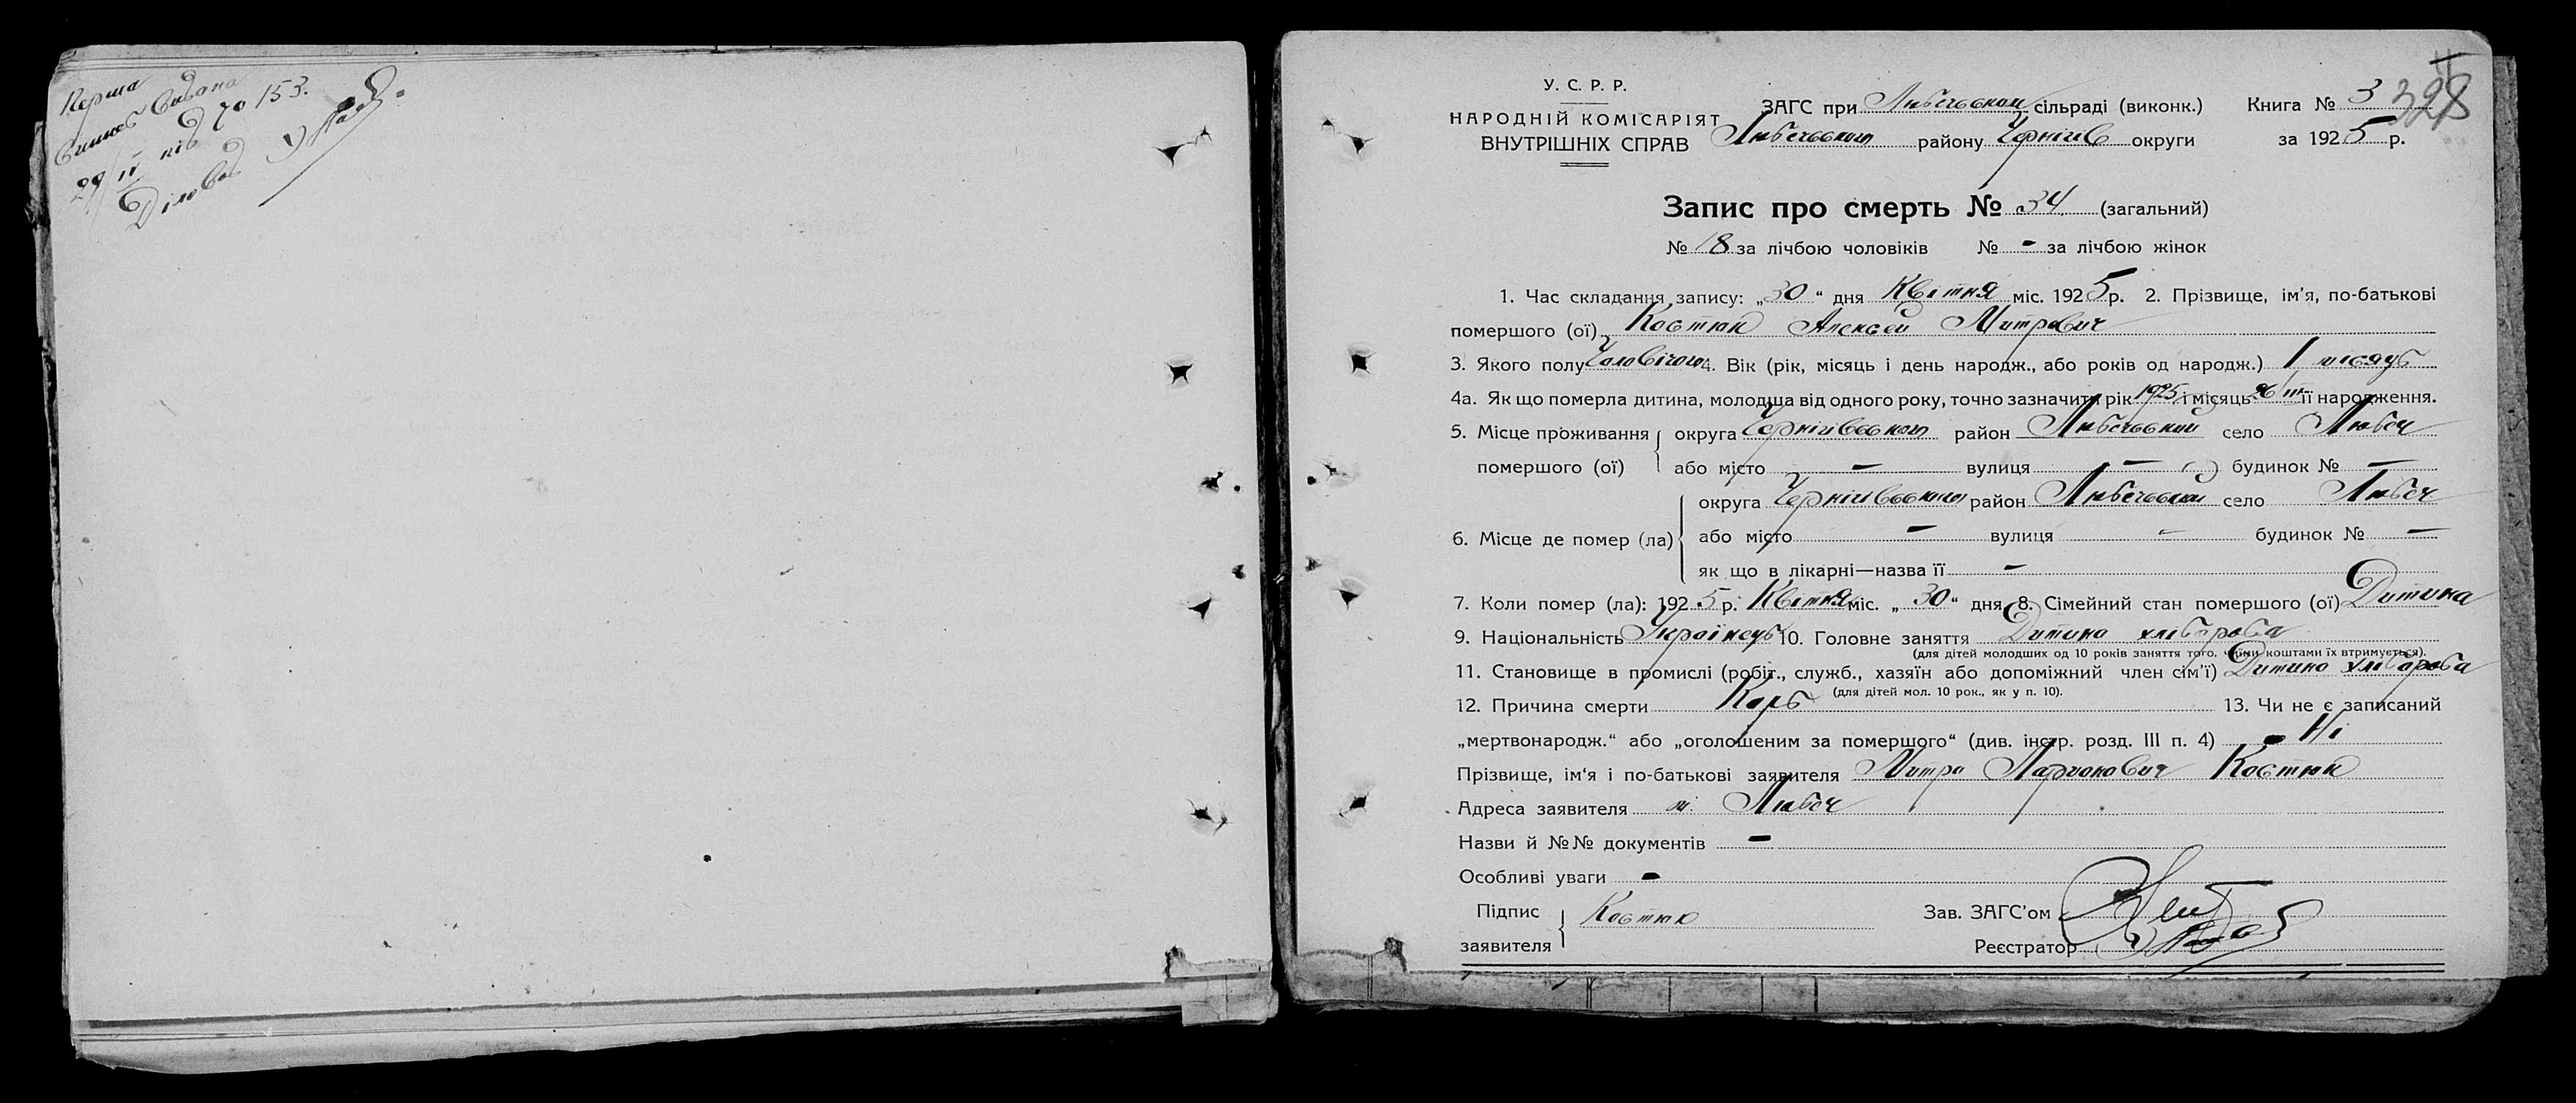 Перша
виписъ видана
29/IV під № 153.
Діловод
У. С. Р. Р.
НАРОДНІЙ КОМІСАРІЯТ
ВНУТРІШНІХ СПРАВ
ЗАГС при Любечьской сільраді (виконк.) Книга № 3 328
Любечьского району Черніг округи за 1925 р.
Запис про смерть № 34 (загальний)
№ 18 за лічбою чоловіків № - за лічбою жінок
1. Час складання запису: „30“ дня Квітня міс. 1925 р. 2. Прізвище, ім’я, по-батькові
помершого (ої) Костюк Алексей Митрович
3. Якого полу Чоловічого 4. Вік (рік, місяць і день народж., або років од народж.) 1 місяць
4а. Як що померла дитина, молодша від одного року, точно зазначити рік 1925 і місяць 26/III її народження.
5. Місце проживання округа Чернігівського район Любечьский село Любеч
помершого (ої) або місто - вулиця - будинок № -
округа Чернігівського район Любечьский село Любеч
6. Місце де помер (ла) або місто - вулиця - будинок № -
як що в лікарні—назва її -
7. Коли помер (ла): 1925 р. Квітня міс. „30“ дня 8. Сімейний стан помершого (ої) Дитина
9. Національність Українець 10. Головне заняття Дитина хлібороба
(для дітей молодших од 10 років заняття того, чиїми коштами їх втримується).
11. Становище в промислі (робіт., служб., хазяїн або допоміжний член сім’ї) Дитина хлібороба
(для дітей мол. 10 рок., як у п. 10).
12. Причина смерти Корь 13. Чи не є записаний
„мертвонародж.“ або „оголошеним за помершого“ (див. інстр. розд. III п. 4) - Ні
Прізвище, ім’я і по-батькові заявителя Митро Ларионович Костюк
Адреса заявителя м. Любеч
Назви й №№ документів -
Особливі уваги -
Підпис Костюк Зав. ЗАГС’ом
заявителя Реєстратор